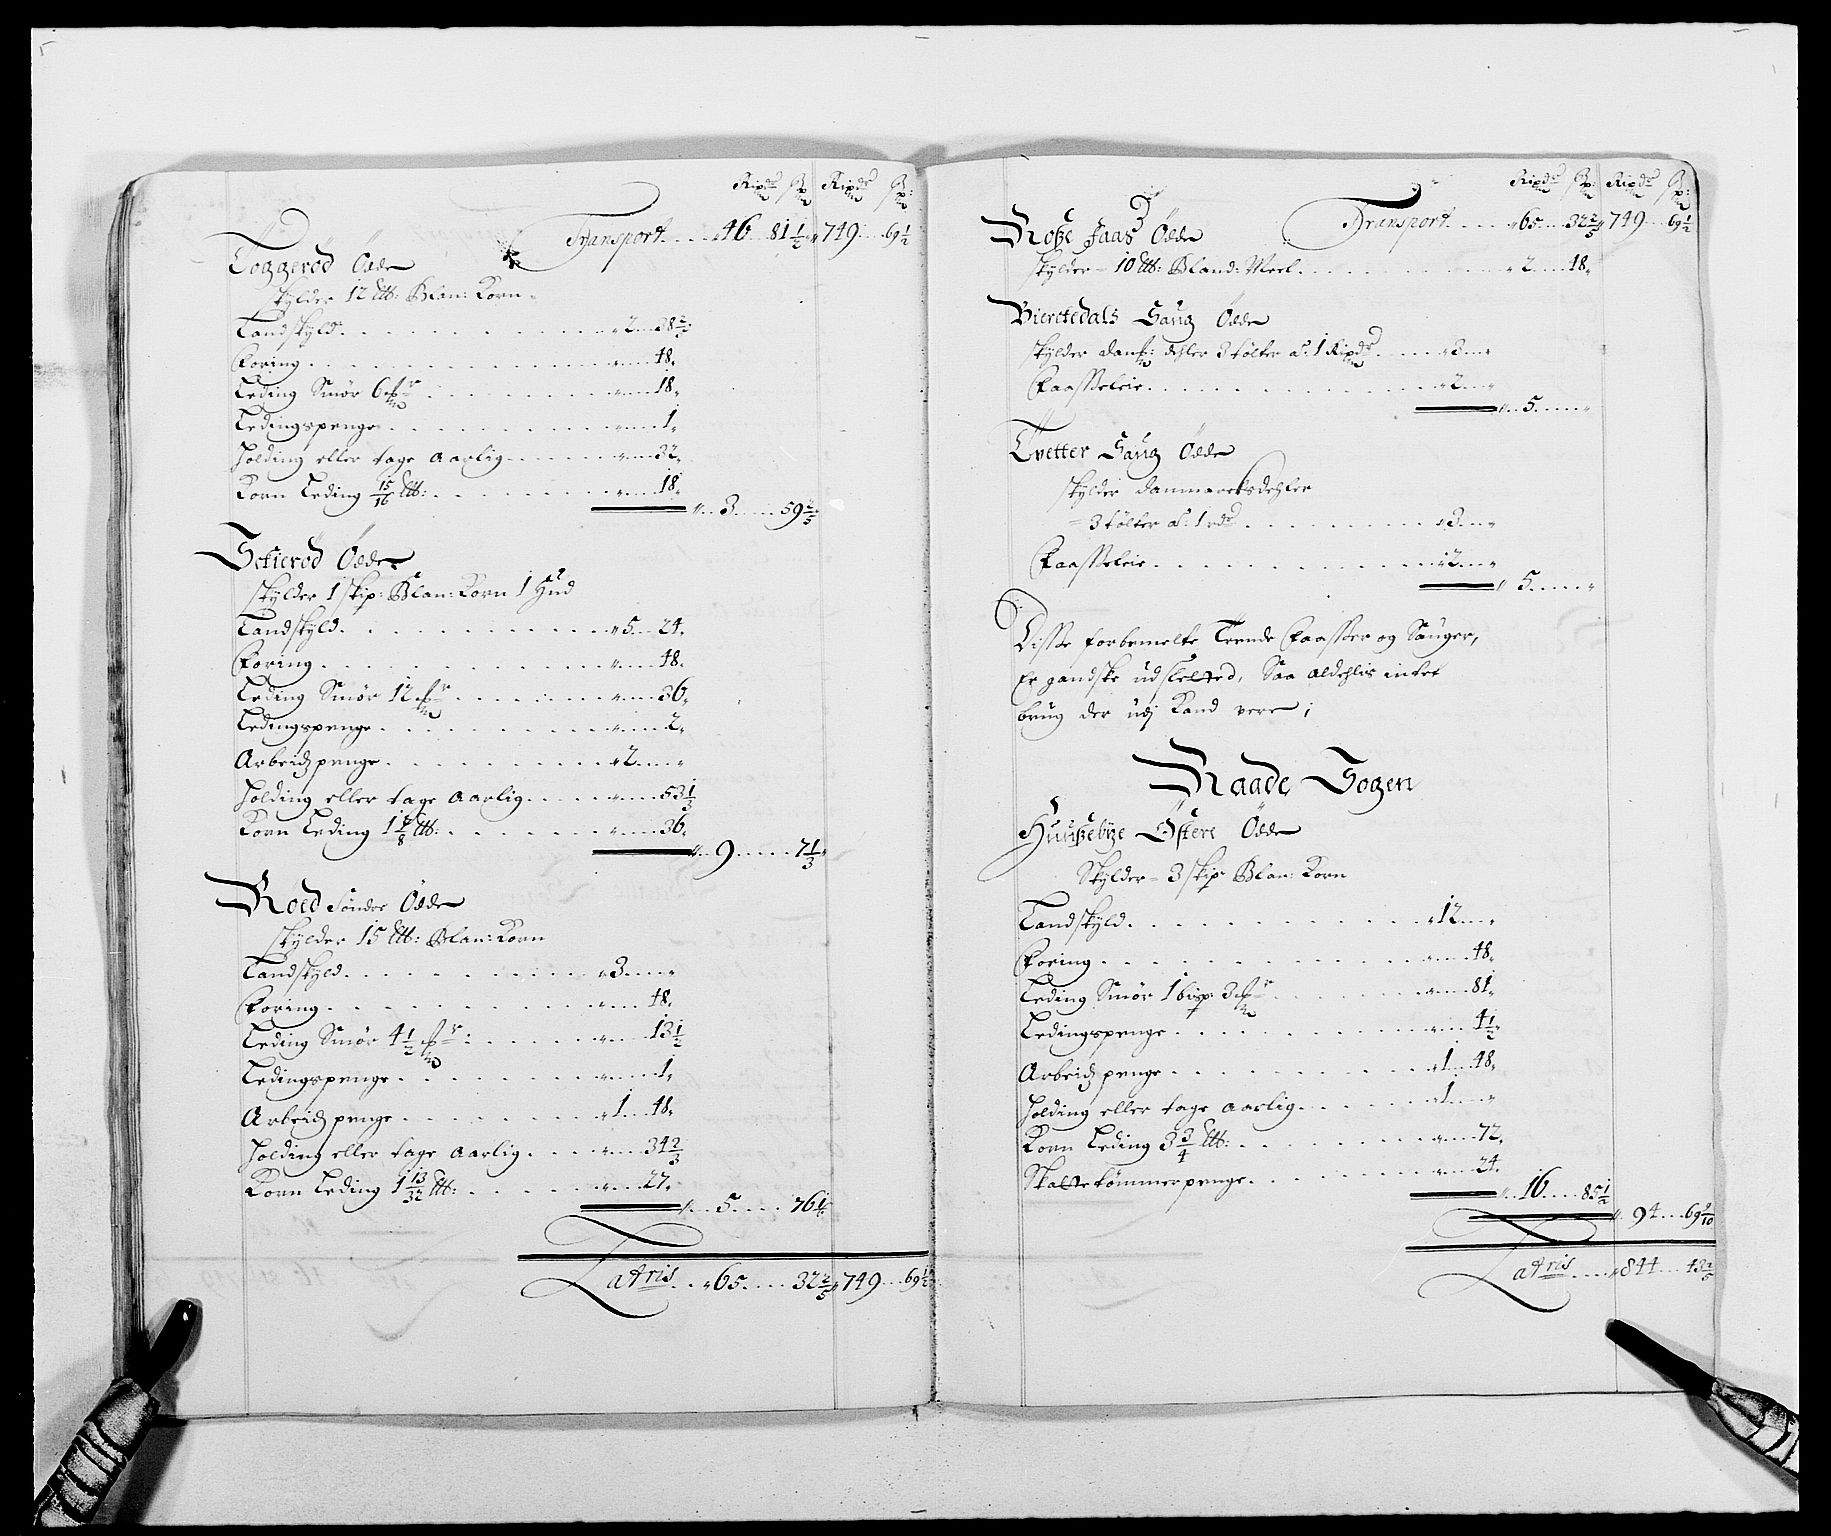 Rixdr ß: Rixdr ß:
Transport.....46 81 1/2 749...69 1/2
Toggerød Øde
skylder 12 Ltt: Blan: Korn
Landskyld.......2...38 2/5
Foring.......48
Leding Smør 6 mr.......18
Ledingspenge.......1
Holding eller tage aarlig.......32
Korn Leding 15/16 Ltt:.......18
3.....59 2/5
Schierød Øde
skylder 1 skip: Blan: Korn 1 Hud
Landskyld.......5...24
Foring.......48
Leding Smør 12 mr.......36
Ledingspenge.......2
Arbeidzpenge.......2
Holding eller tage aarlig.......53 1/3
Korn Leding 1 7/8 Ltt:.......36
9.....7 1/3
Roed Sønder Øde
skylder 15 Ltt: Blan: Korn
Landskyld.......3
Foring.......48
Leding Smør 4 1/2 mr:.......13 1/2
Ledingspenge.......1
Arbeidzpenge.......1...48
Holding eller tage aarlig.......34 2/3
Korn Leding 1 13/32 Ltt:.......27
5.....76 1/6
Latris...65.....32 2/5 749...69 1/2
Rixdr ß: Rixdr ß:
Transport.....65...32 2/5 749...69 1/2
Roße Faas Øde
skylder 10 Ltt: Bland: Meel.......2...18
Bierckedals Saug Øde
skylder danß: dehler 3 tolter a: 1 Rixdr.......3
Faasseleie.......2
5
Tvetter Saug Øde
skylder danmarcksdehler
3 tolter a: 1 rdr.......3
Faasseleie.......2
5
Disse forbemelte Teende Faasser og Sauger,
er gandske udsletted, Saa aldehlis intet
brug der udj Kand vere;
Raade Sogen
Huußebye Østere Øde
Skylder 3 skip Blan: Korn
Landskyld.......12
Foring.......48
Leding Smør 1 bisp: 3 mr.......81
Ledingspenge.......4 1/2
Arbeidzpenge.......1...48
Holding eller tage aarlig.......1
Korn Leding 3 3/4 Ltt:.......72
Skattetømmerpenge.......24
16.....85 1/2
94...69 9/10
Latris.....844...43 2/5